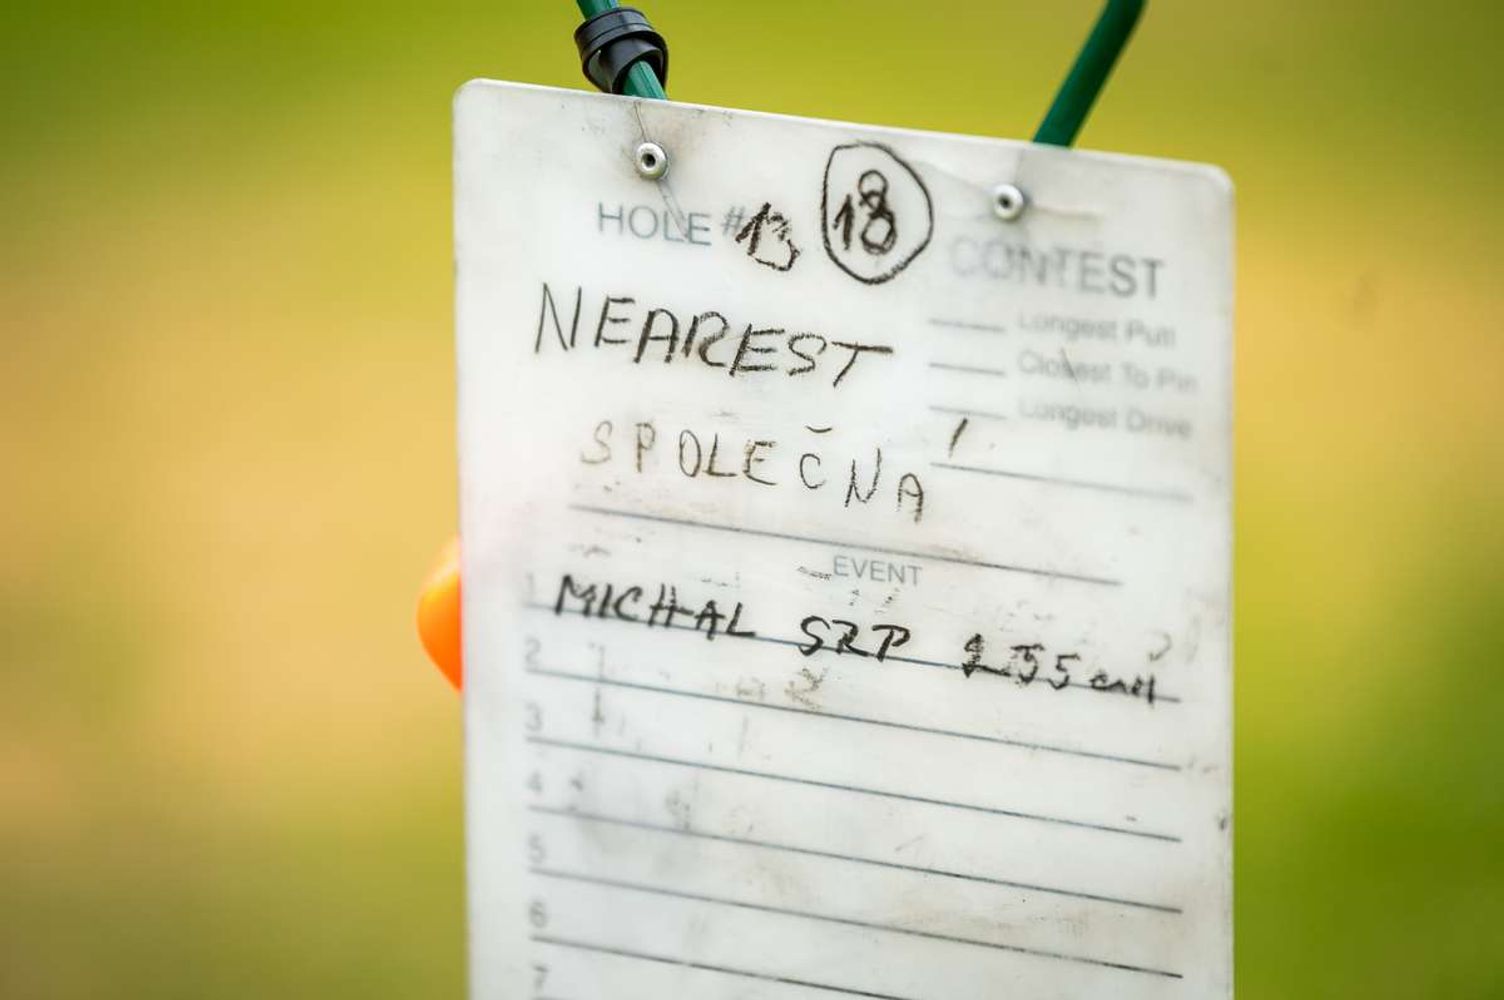 HOLE # 13 18
CONTEST
NEAREST
Longest Putt
Closest To Pin
Longest Drive
SPOLEČNA
EVENT
1 MICHAL SRP 255 cm
2
3
4
5
6
7